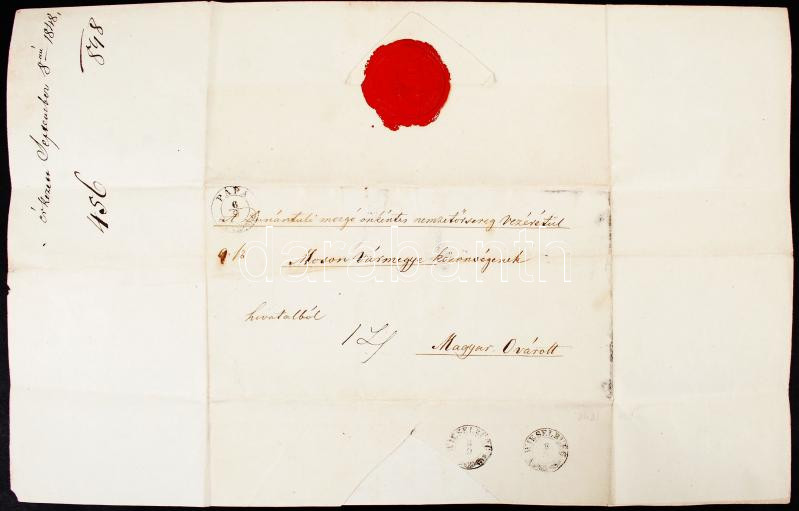 érkezett September 8án 1848.
848
456
PÁPA
6
9
A Dunántuli mozgó önkéntes nemzetőrsereg Vezérétül
Moson Vármegye közönségének
hivatalból
Magyar Ovárott
WIESELBURG
8
9
WIESELBURG
8
darabanth